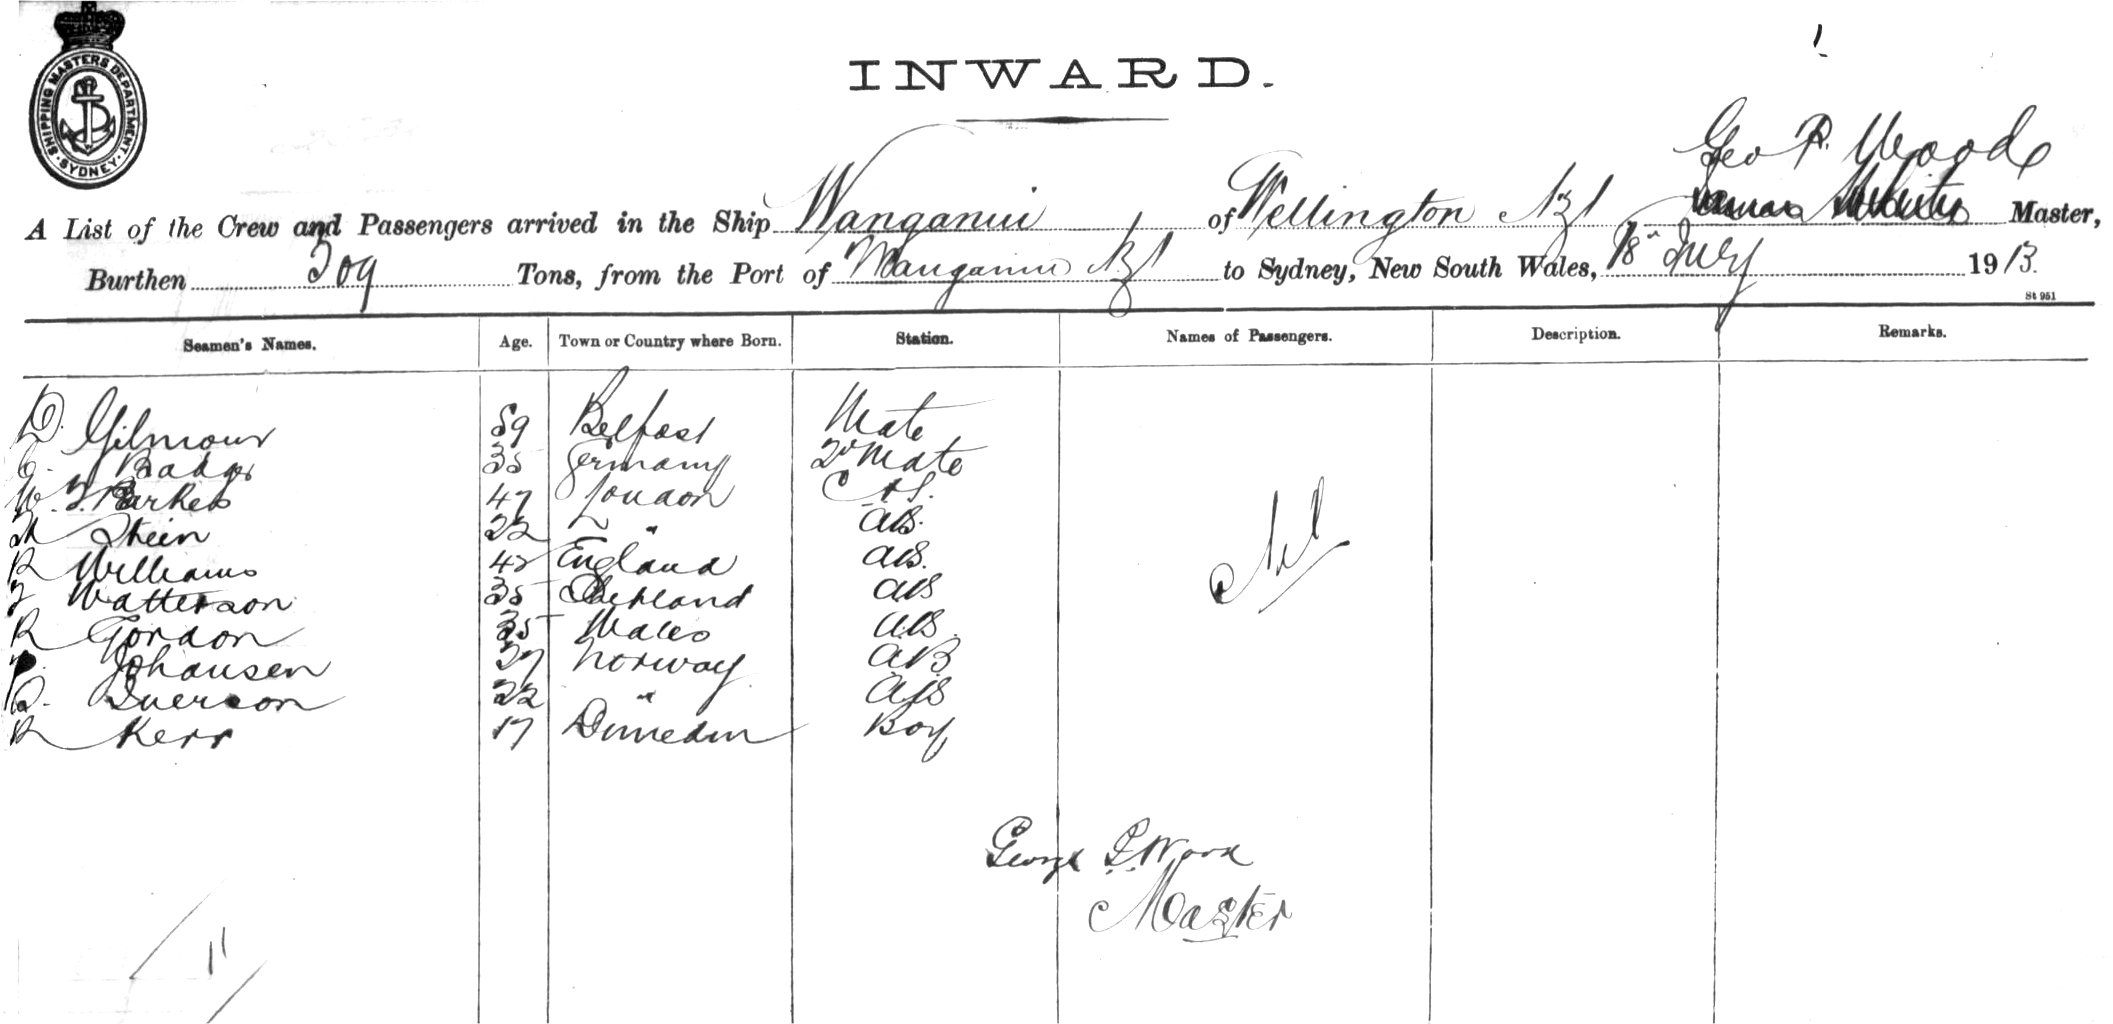 SHIPPING MASTERS DEPARTMENT. SYDNEY.
INWARD.
Geo P. Wood
A List of the Crew and Passengers arrived in the Ship Wanganui of Wellington NZ Master,
Burthen 309 Tons, from the Port of Wanganui NZ to Sydney, New South Wales, 18 July 1913.
St 951
Seamen's Names. Age. Town or Country where Born. Station. Names of Passengers. Description. Remarks.
D. Gilmour 59 Belfast Mate
35 Germany 2d Mate
W. Barker 47 London C & S.
Stein 22 " AB.
R Williams 42 England AB.
Watterson 35 Shetland AB
R Gordon 35 Wales AB.
P. Johansen 27 Norway AB
Iverson 22 " AB
R Kerr 17 Dunedin Boy
Nil
George P. Wood
Master
11